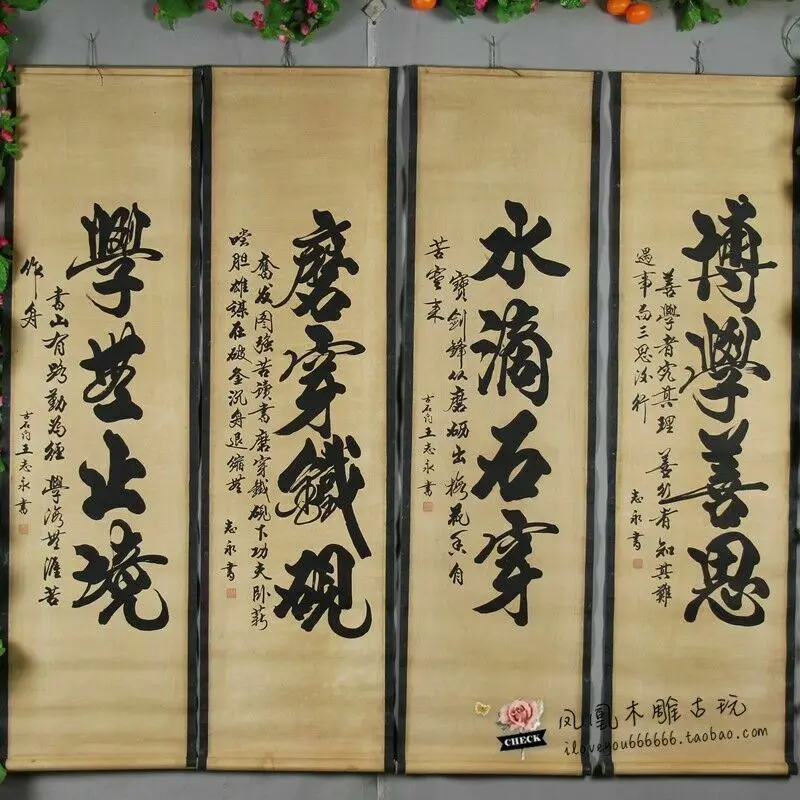 博學善思
善學者究其理 善行者知其難
遇事而三思後行
志永書
水滴石穿
寶劍鋒從磨砺出梅花香自
苦寒来
古石门王志永書
磨穿鐵硯
奮发图强苦读書磨穿鐵硯下功夫卧薪
嚐胆雄謀在破釜沉舟退缩無
志永書
學無止境
書山有路勤為径 學海無涯苦
作舟
古石门王志永書
CHECK
凤凰木雕古玩
iloveyou666666.taobao.com